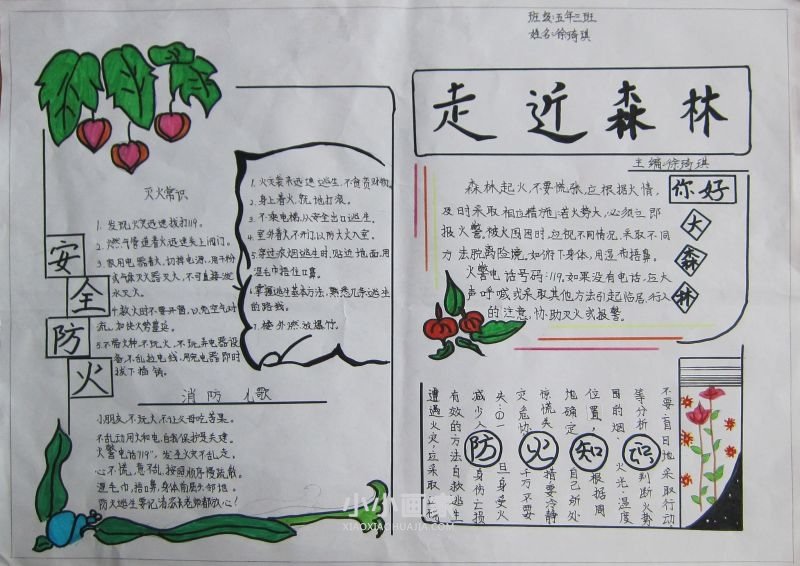 班级:五年三班
姓名:徐琦琪
走近森林
主编:徐琦琪
你好
大
森
林
森林起火,不要慌张,应根据火情,
及时采取相应措施,若火势大,必须立即
报火警,被火围困时,应视不同情况,采取不同
方法脱离险境,如俯下身体,用湿布捂鼻。
火警电话号码:119,如果没有电话,应大
声呼喊或采取其他方法引起临居,行人
的注意,协助灭火或报警。
安
全
防
火
灭火常识
1、发现火灾迅速拨打119。
2、燃气管道着火迅速关上阀门。
3、家用电器着火,切掉电源,用干粉
或气体灭火器灭火,不可直接泼
水灭火。
4、救火时不要开窗,以免空气对
流,加快火势蔓延。
备,不乱拉电线,用完电器即时
拔下插销。
1、火灾袭来迅速逃生,不贪贵财物。
2、身上着火,就地打滚。
3、不乘电梯,从安全出口逃生。
4、室外着火不开门,以防大火入室。
5、穿过浓烟逃生时,贴近地面,用
湿毛巾捂住口鼻。
掌握逃生基本方法,熟悉几条逃生
的路线。
7、楼外燃放爆竹。
消防儿歌
小朋友,不玩火,不让父母吃苦果。
不乱动用火和电,自我保护是关键。
火警电话"119",发生火灾不乱走。
心不慌,意不乱,按照顺序慢疏散。
湿毛巾,捂口鼻,身体前屈头邻地。
防火逃生要记清
防火知识
不要盲目地采取行动,
等分析,判断火势
围的烟、火光、温度
位置,根据周
地确定自己所处
惊慌失措要冷静
灾危协,千万不要
失:①一旦身受火
减少人身伤亡损
有效的方法自救逃生
遭遇火灾,应采取正确
小小画家
XIAOXIAOHUAJIA.COM